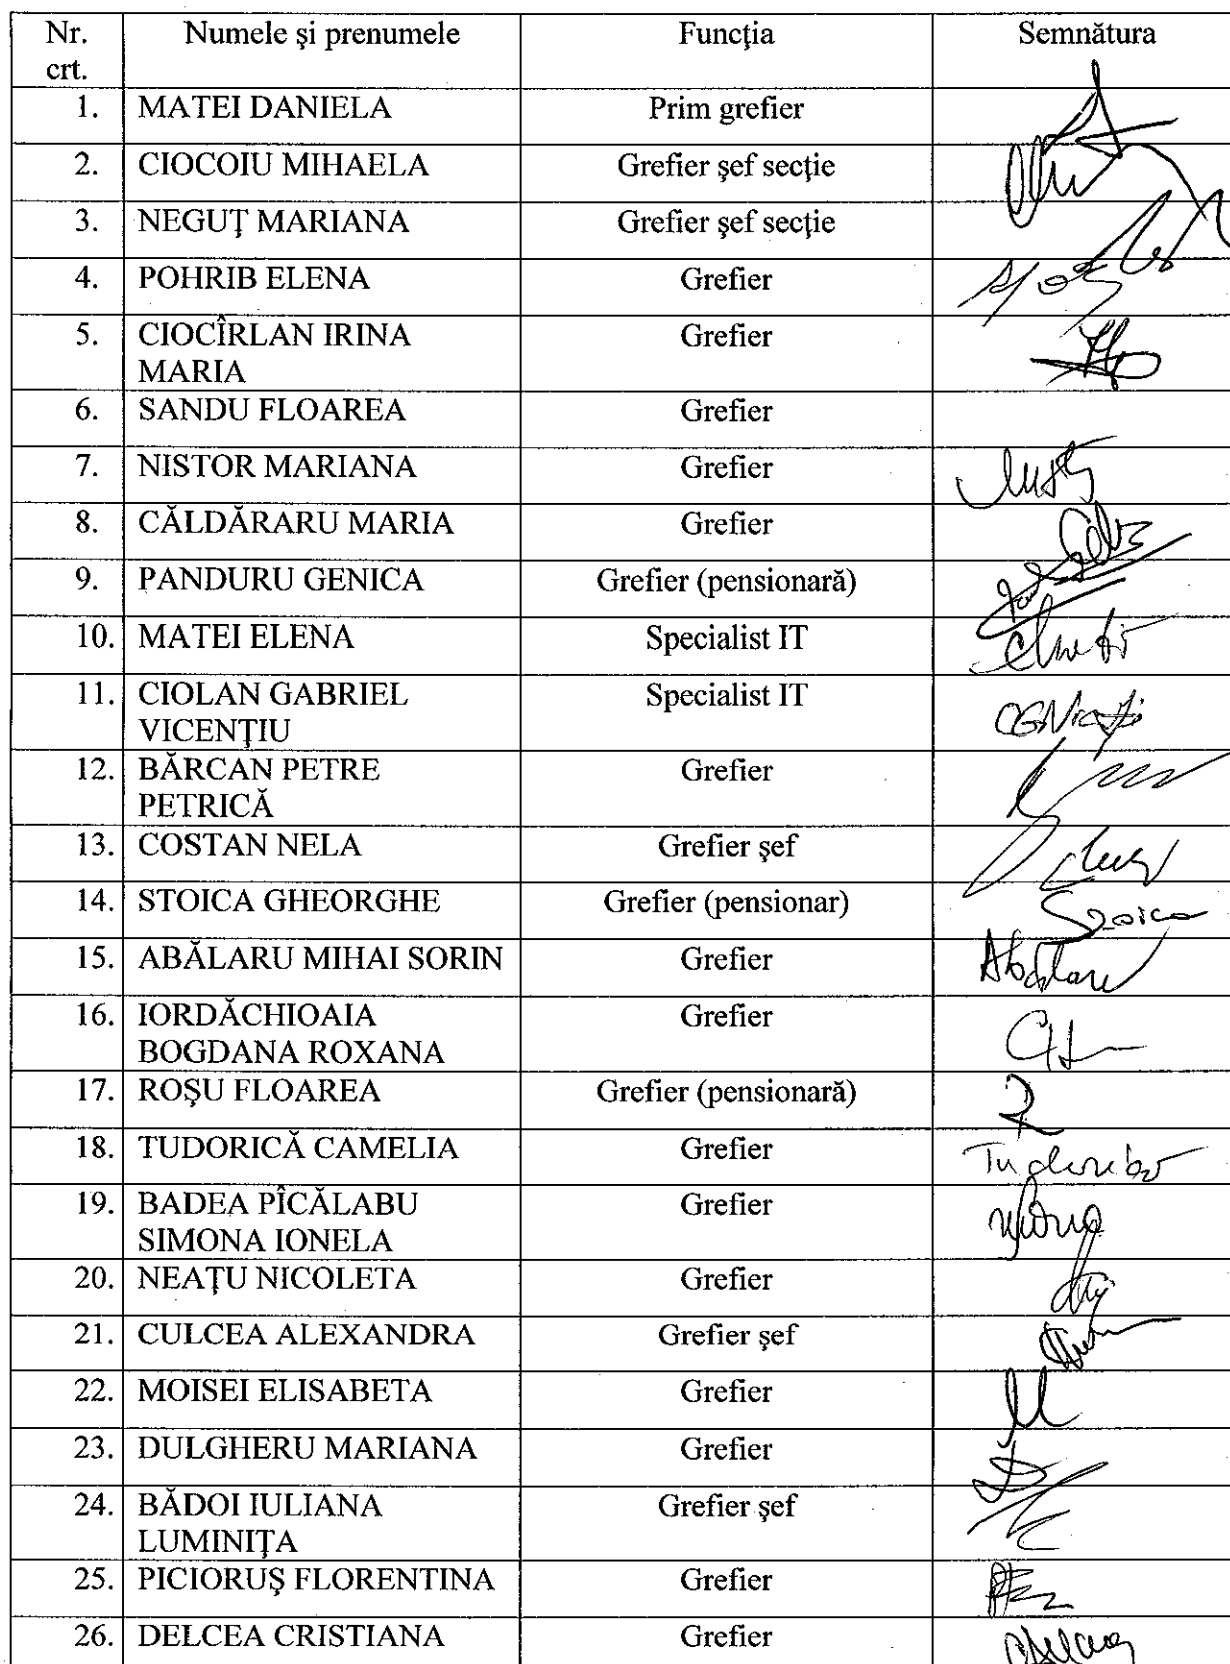 Nr. crt. Numele şi prenumele Funcţia Semnătura
1. MATEI DANIELA Prim grefier
2. CIOCOIU MIHAELA Grefier şef secţie
3. NEGUŢ MARIANA Grefier şef secţie
4. POHRIB ELENA Grefier
5. CIOCÎRLAN IRINA Grefier
MARIA
6. SANDU FLOAREA Grefier
7. NISTOR MARIANA Grefier
8. CĂLDĂRARU MARIA Grefier
9. PANDURU GENICA Grefier (pensionară)
10. MATEI ELENA Specialist IT
11. CIOLAN GABRIEL Specialist IT
VICENŢIU
12. BĂRCAN PETRE Grefier
PETRICĂ
13. COSTAN NELA Grefier şef
14. STOICA GHEORGHE Grefier (pensionar) Stoica
15. ABĂLARU MIHAI SORIN Grefier Abălaru
16. IORDĂCHIOAIA Grefier
BOGDANA ROXANA
17. ROŞU FLOAREA Grefier (pensionară)
18. TUDORICĂ CAMELIA Grefier
19. BADEA PÎCĂLABU Grefier
SIMONA IONELA
20. NEAŢU NICOLETA Grefier
21. CULCEA ALEXANDRA Grefier şef
22. MOISEI ELISABETA Grefier
23. DULGHERU MARIANA Grefier
24. BĂDOI IULIANA Grefier şef
LUMINIŢA
25. PICIORUŞ FLORENTINA Grefier
26. DELCEA CRISTIANA Grefier